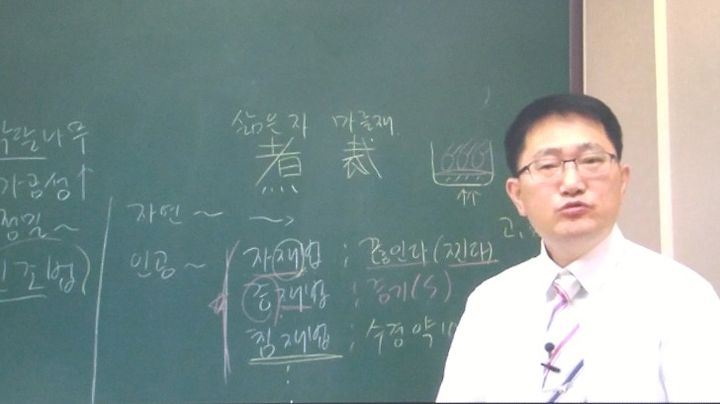 박달나무
가공성↑
정밀~
인조법
삶은 자 마를재
煮 裁
자연~ ~>
인공~
자재법 ; 끓인다(찐다)
증재법 ; 증기(S)
침재법 ; 수경약